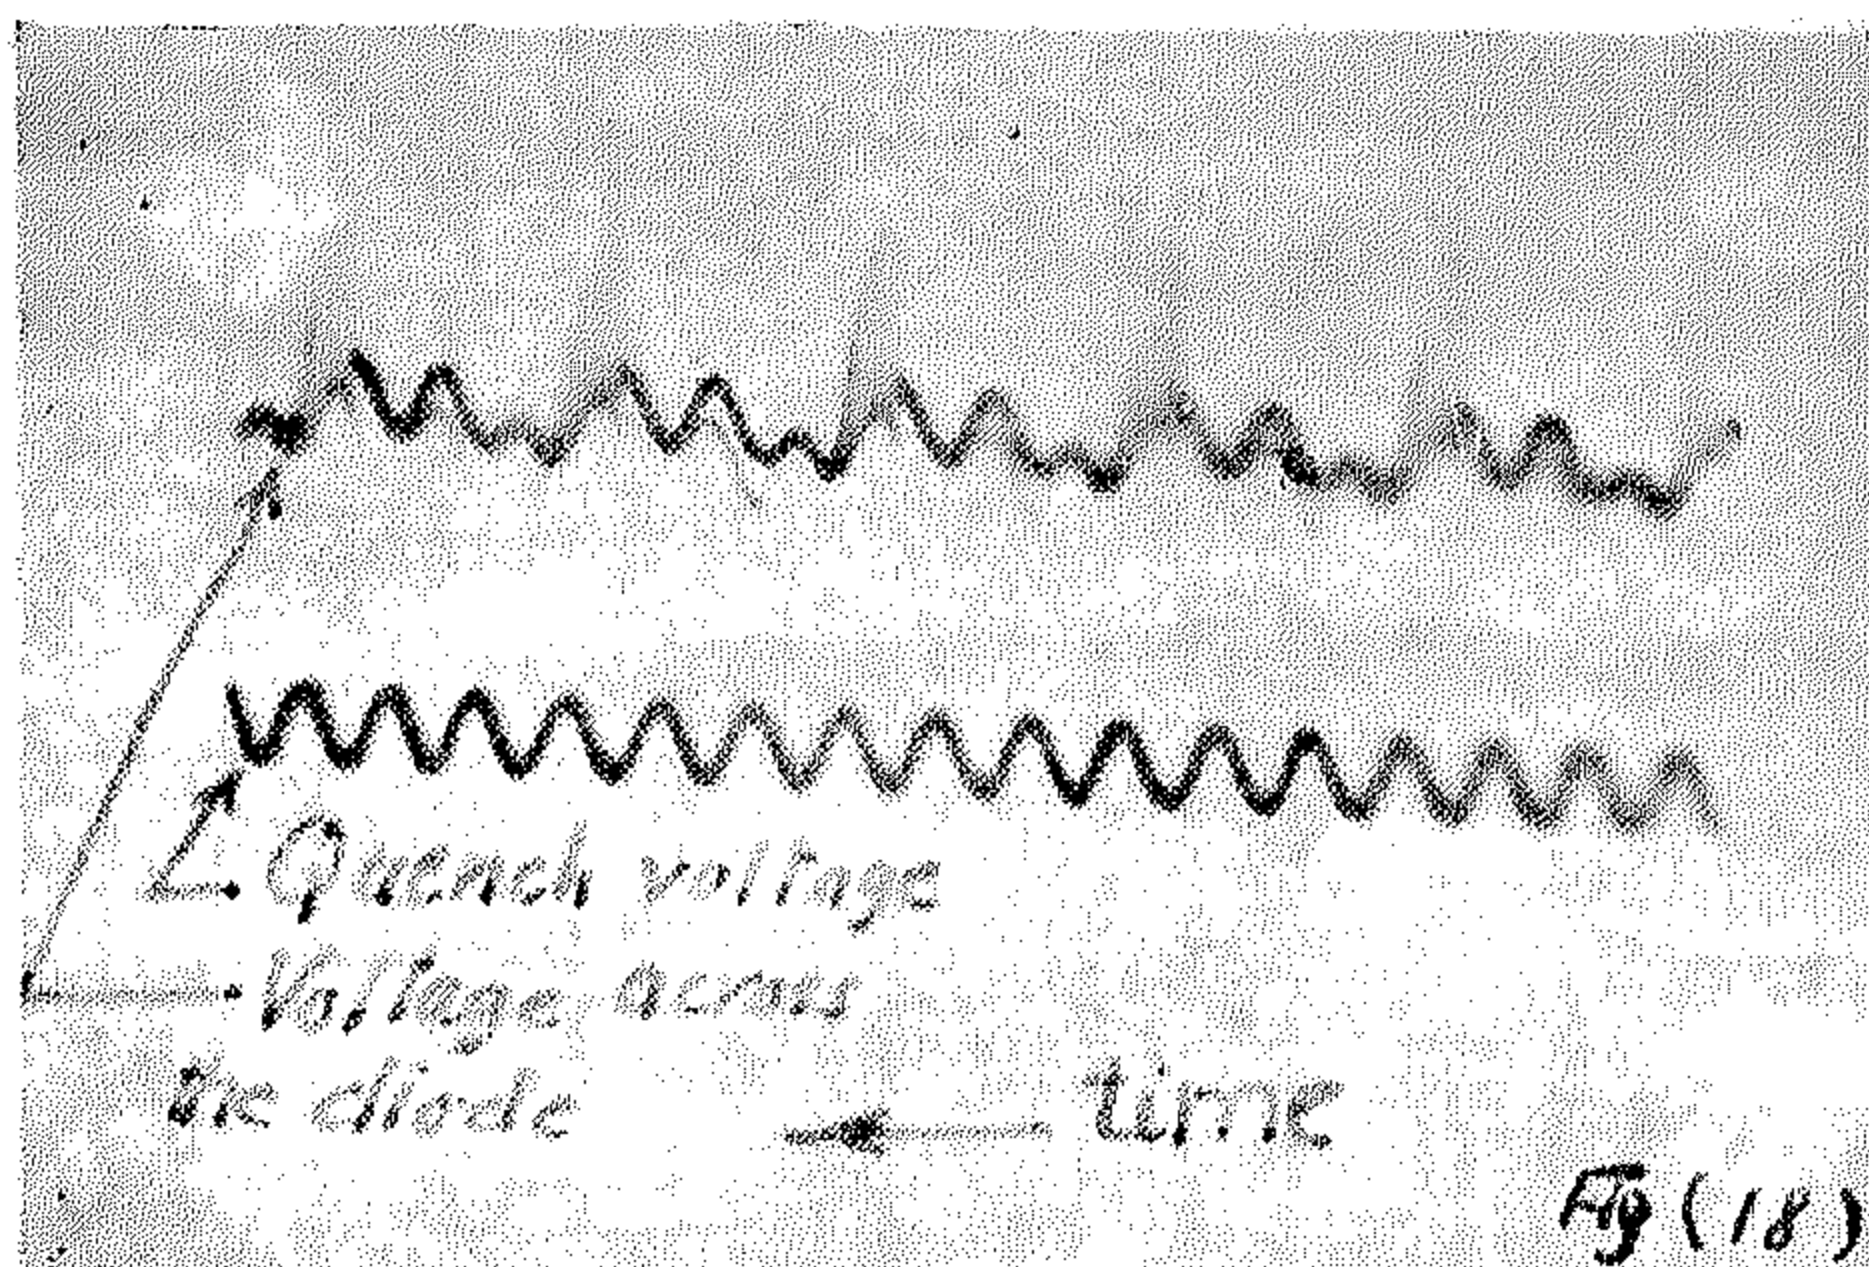 Quench voltage
Voltage across
the diode
time
Fig (18)